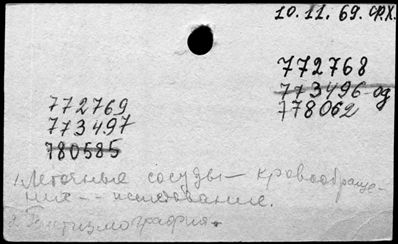 10.11.69. Ф.Х.
772768
773496-од
778062
772769
773497
780585
1. Легочные сосуды - кровообраще-
ние - исследование.
2. Плетизмография.